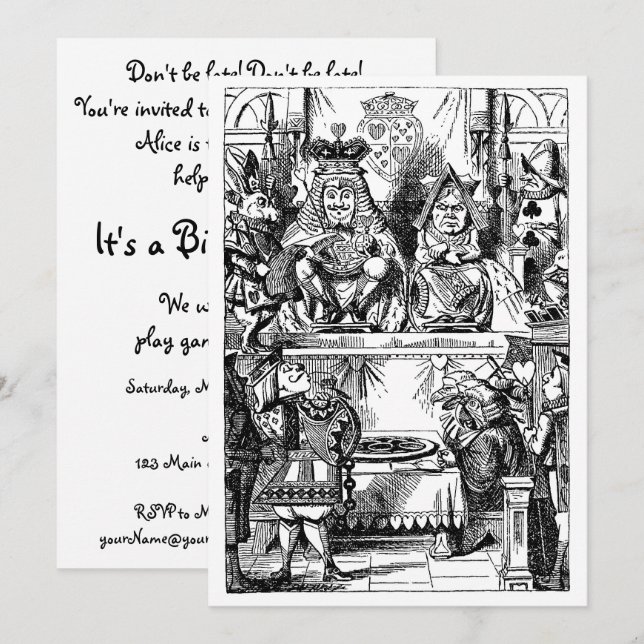 Don't be late! Don't be late!
You're invited to
Alice is
help
It's a Bi
We w
play gan
Saturday, M
123 Main
RSVP to M
yourName@your